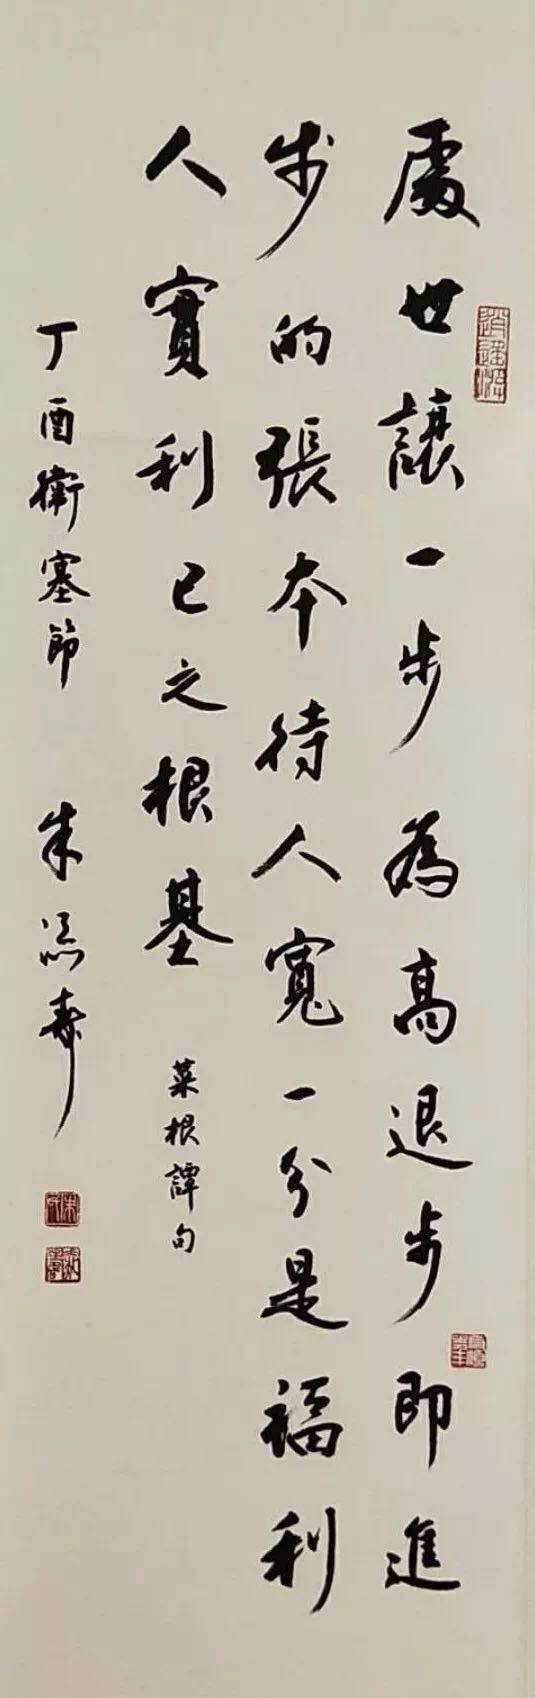 處世讓一步為高退步即進
步的張本待人寬一分是福利
人實利己之根基
菜根譚句
丁酉衛塞節
朱添壽